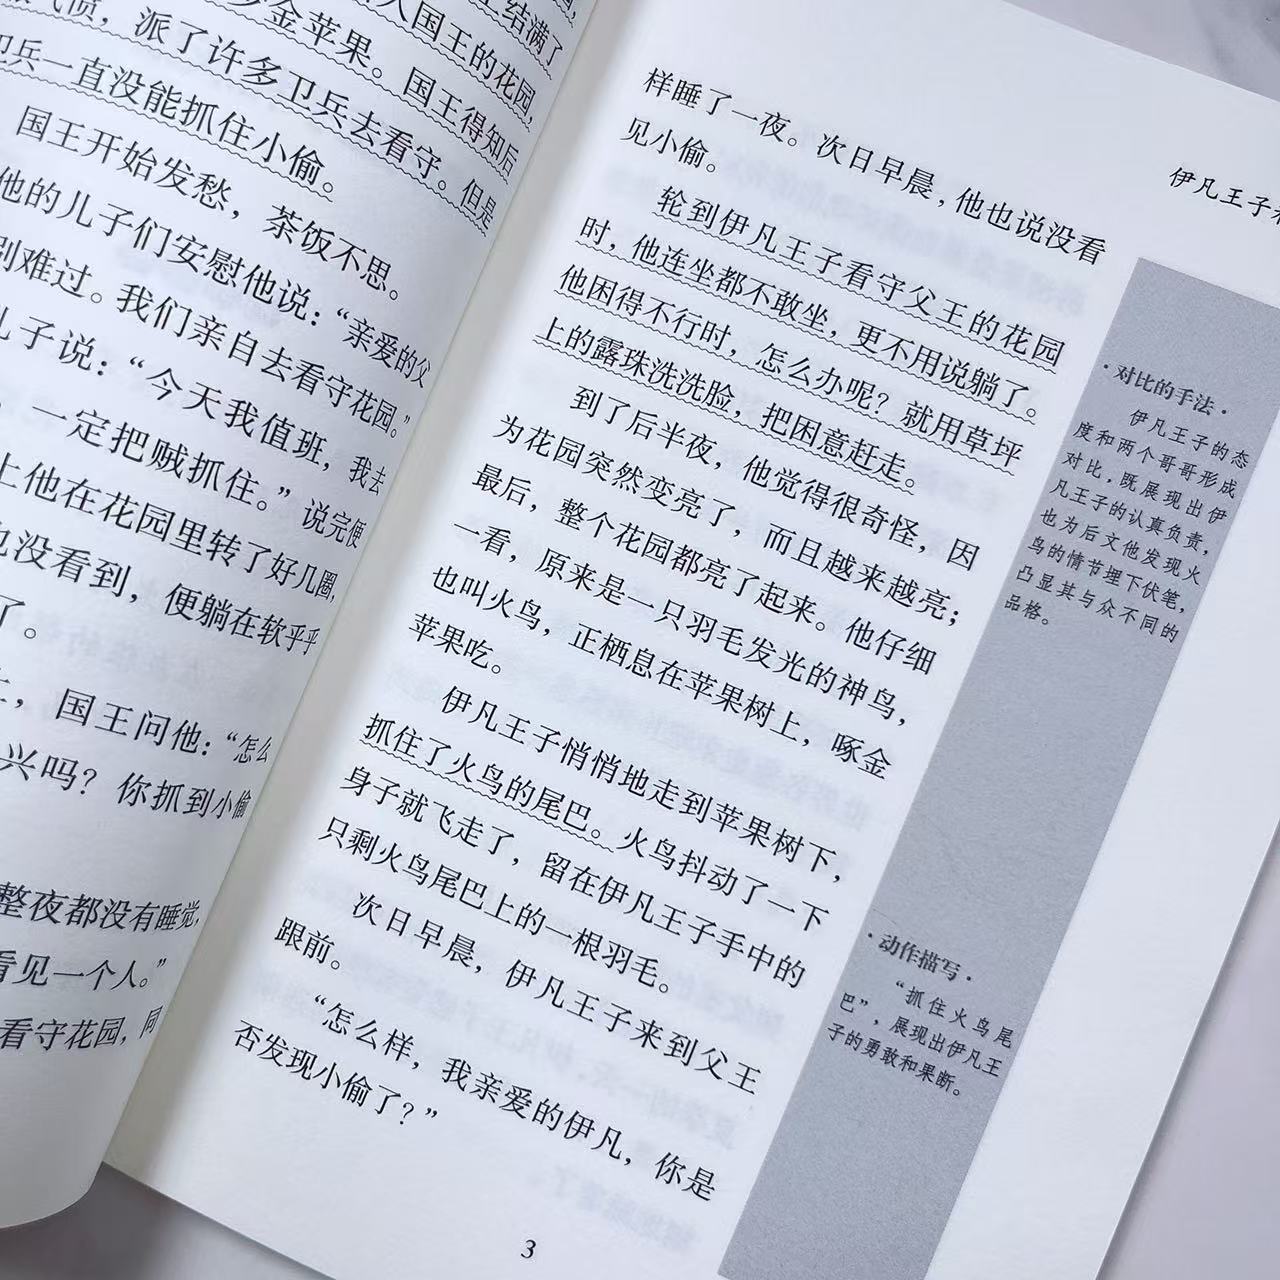 结满了
人国王的花园,
金苹果。国王得知后
派了许多卫兵去看守。但是
兵一直没能抓住小偷。
国王开始发愁，茶饭不思。
他的儿子们安慰他说：“亲爱的父
别难过。我们亲自去看守花园。”
儿子说：“今天我值班，我去
，一定把贼抓住。”说完便
上他在花园里转了好几圈，
也没看到，便躺在软乎乎
了。
，国王问他：“怎么
兴吗？你抓到小偷
整夜都没有睡觉，
看见一个人。”
看守花园，同
样睡了一夜。次日早晨，他也说没看
见小偷。
轮到伊凡王子看守父王的花园
时，他连坐都不敢坐，更不用说躺了。
他困得不行时，怎么办呢？就用草坪
上的露珠洗洗脸，把困意赶走。
到了后半夜，他觉得很奇怪，因
为花园突然变亮了，而且越来越亮；
最后，整个花园都亮了起来。他仔细
一看，原来是一只羽毛发光的神鸟，
也叫火鸟，正栖息在苹果树上，啄金
苹果吃。
伊凡王子悄悄地走到苹果树下，
抓住了火鸟的尾巴。火鸟抖动了一下
身子就飞走了，留在伊凡王子手中的
只剩火鸟尾巴上的一根羽毛。
次日早晨，伊凡王子来到父王
跟前。
“怎么样，我亲爱的伊凡，你是
否发现小偷了？”
3
伊凡王子
·对比的手法·
伊凡王子的态
度和两个哥哥形成
对比，既展现出伊
凡王子的认真负责，
也为后文他发现火
鸟的情节埋下伏笔，
凸显其与众不同的
品格。
·动作描写·
“抓住火鸟尾
巴”，展现出伊凡王
子的勇敢和果断。